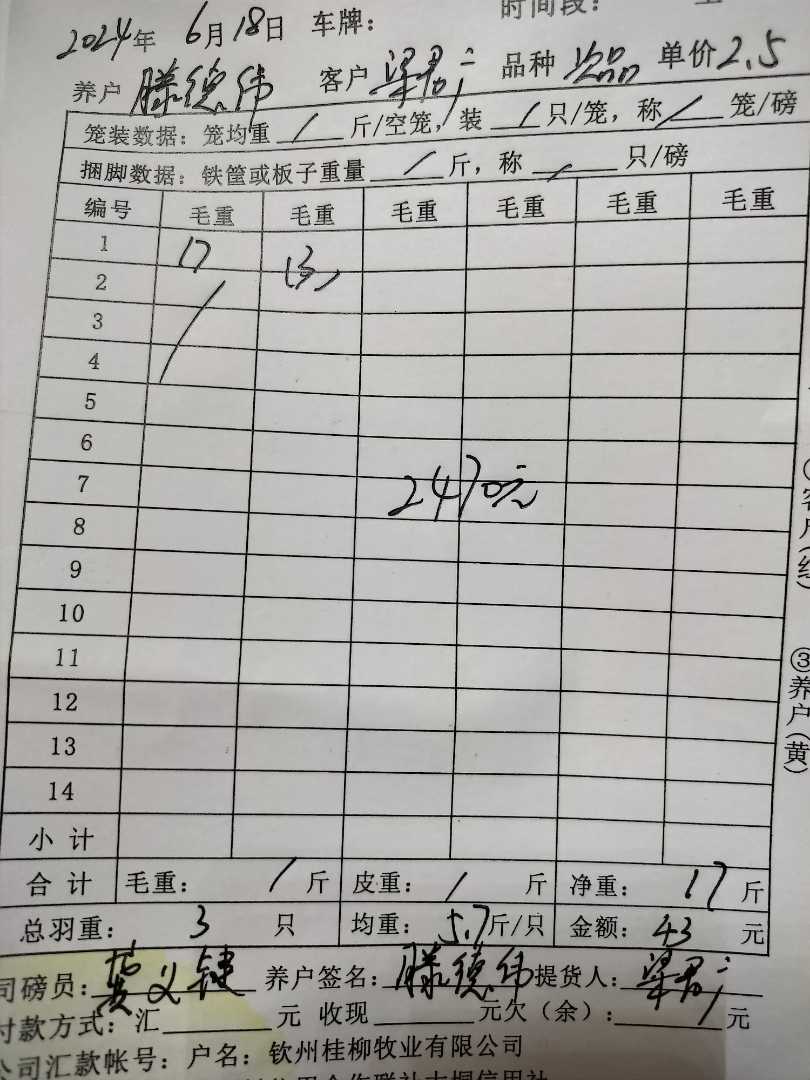 时间段：
2024年 6月18日 车牌：
养户 滕德伟 客户 梁君 品种 次品 单价2.5
笼装数据：笼均重 / 斤/空笼，装 / 只/笼，称 / 笼/磅
捆脚数据：铁筐或板子重量 / 斤，称 / 只/磅
编号 毛重 毛重 毛重 毛重 毛重 毛重
1 17 (3)
2
3
4
5
6
7 2470元
8
9
10
11
12
13
14
小计
合计 毛重： / 斤 皮重： / 斤 净重： 17 斤
总羽重： 3 只 均重： 5.7斤/只 金额： 43 元
司磅员： 黄义健 养户签名： 滕德伟 提货人： 梁君
付款方式：汇 元 收现 元欠（余）： / 元
公司汇款帐号：户名：钦州桂柳牧业有限公司
客户(红)
③养户(黄)